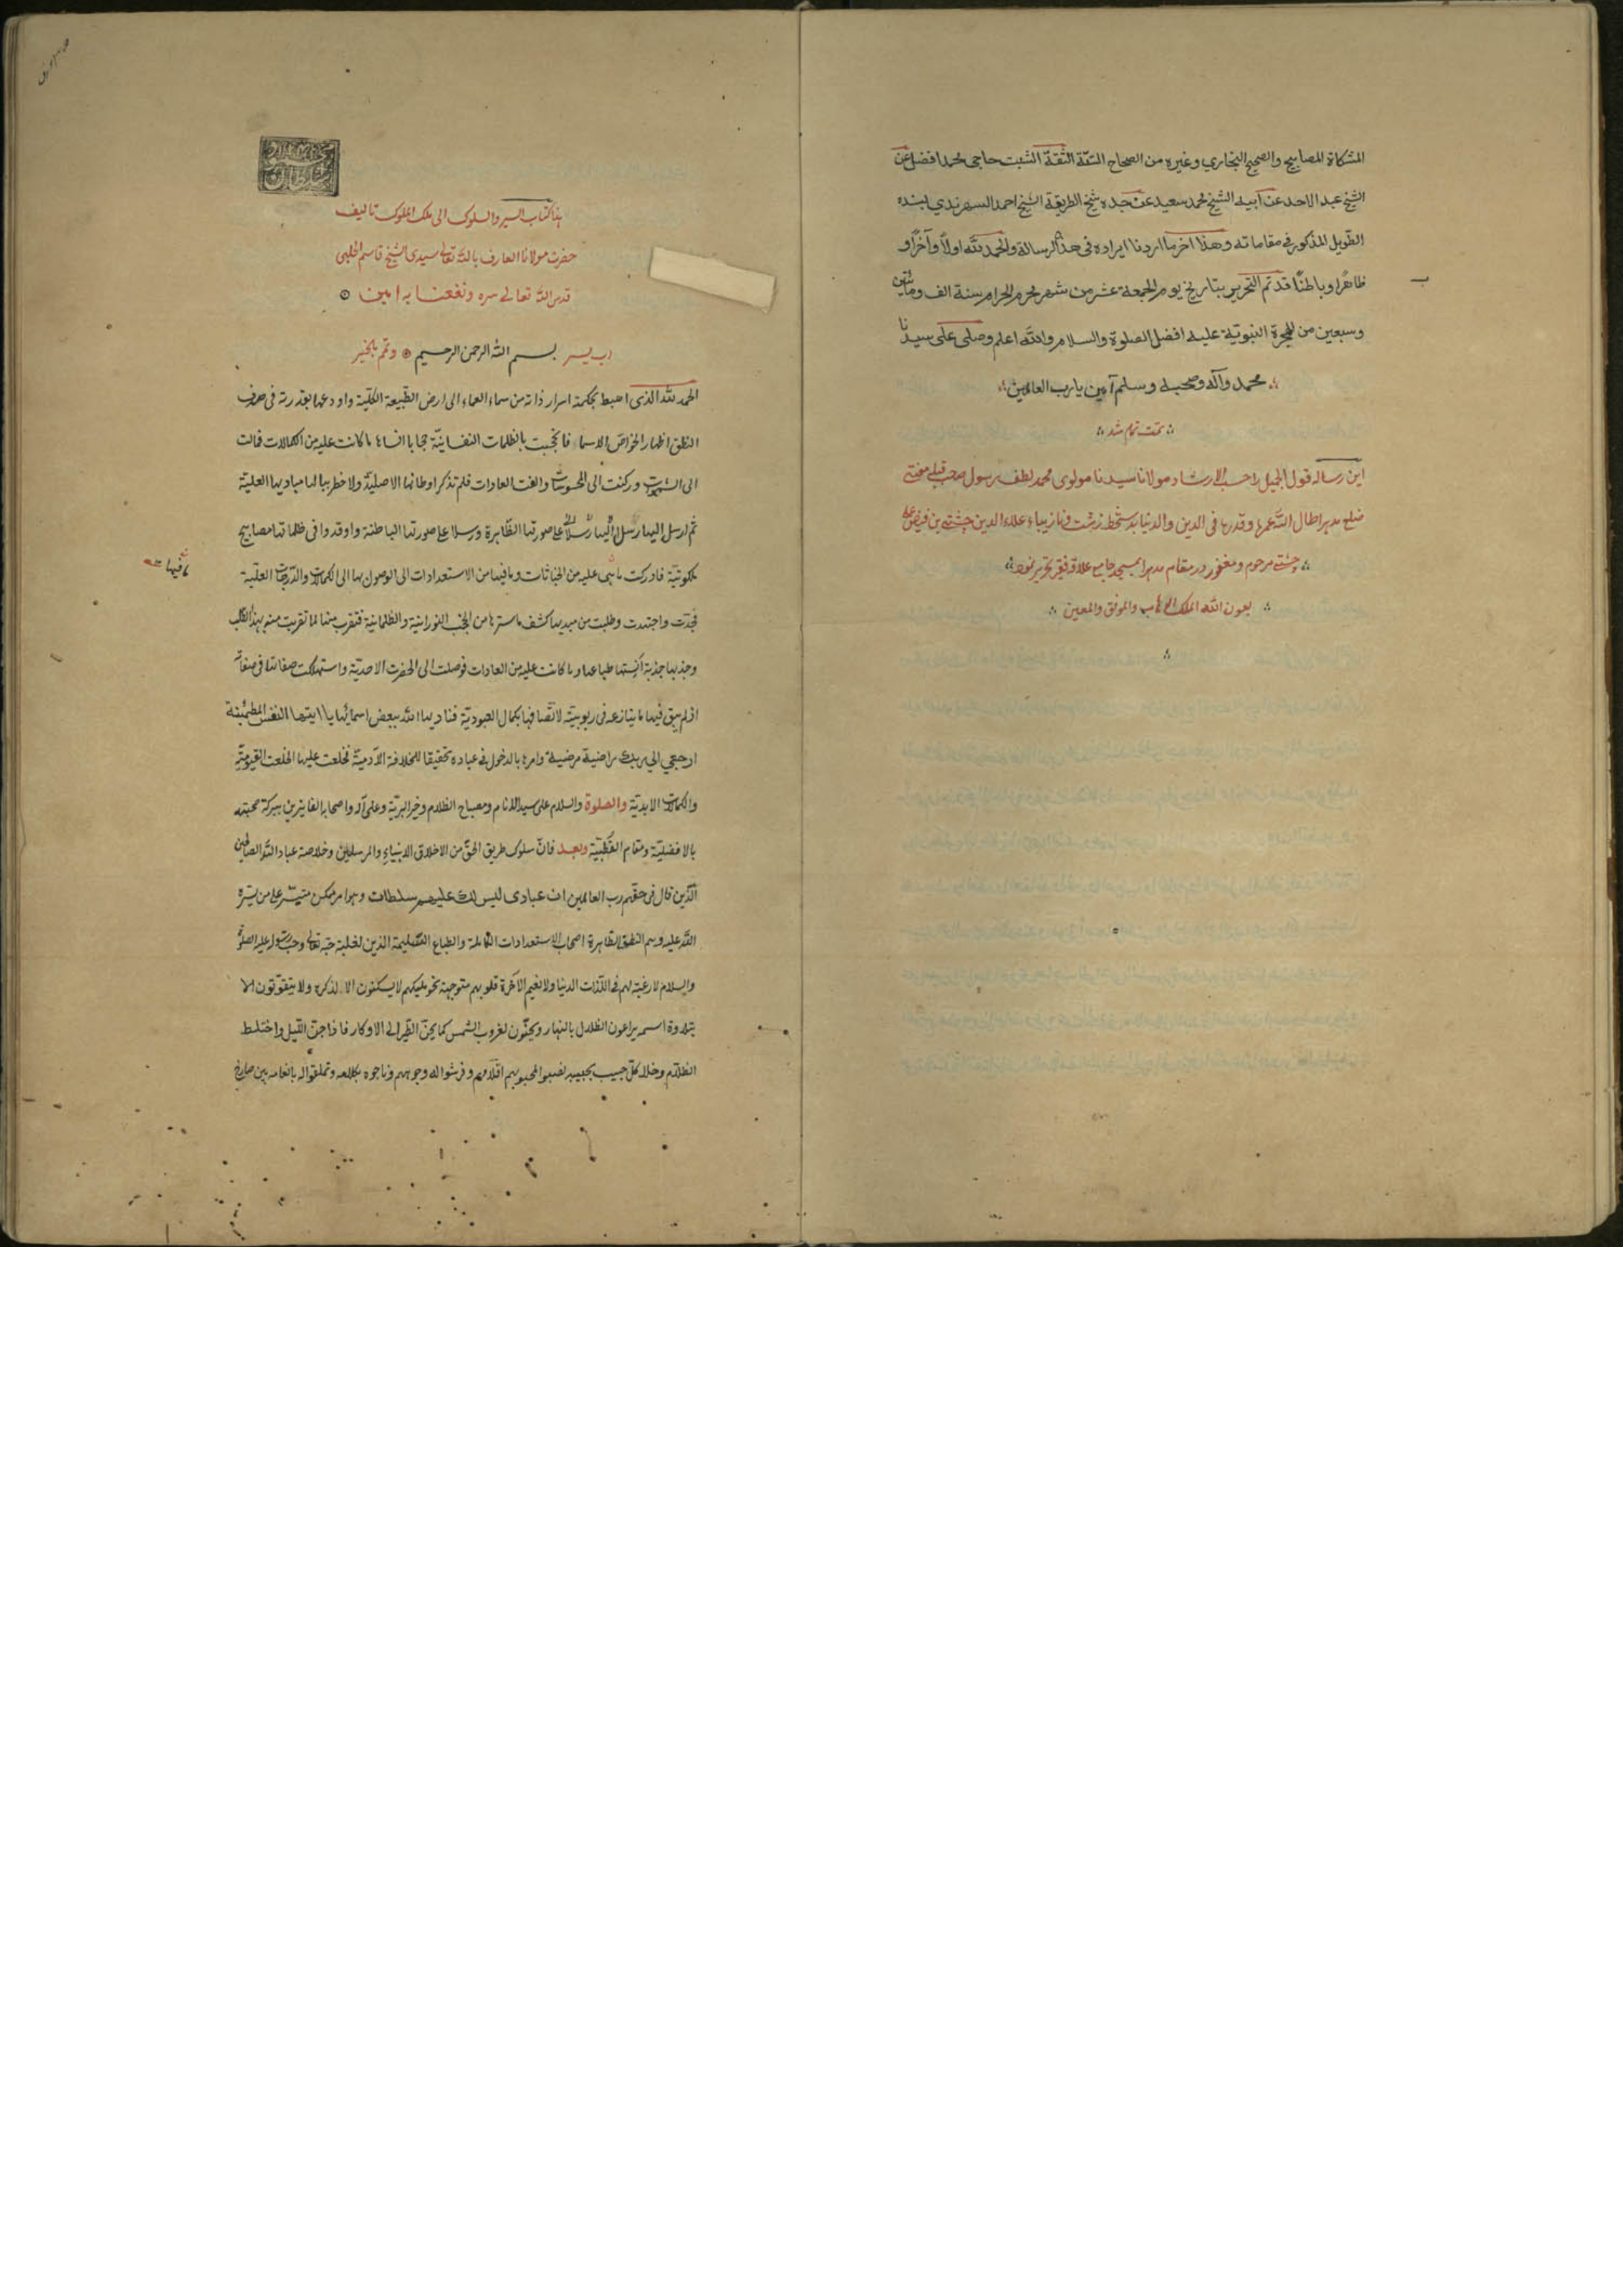 المشكاة المصابيح والصحيح البخاري وغيره من الصحاح الستة الثقة الثبت حاجي محمد افضل عن
الشيخ عبد الاحد عن ابيه الشيخ محمد سعيد عن جده شيخ الطريقة الشيخ احمد السهرندي بسنده
الطويل المذكور في مقاماته وهذا اخر ما اردنا ايراده في هذه الرسالة والحمد لله اولاً وآخراً و
ظاهراً وباطناً قد تم التحرير بتاريخ يوم الجمعة عشر من شهر محرم الحرام سنة الف ومائتين
وسبعين من الهجرة النبوية عليه افضل الصلوة والسلام والله اعلم وصلى على سيدنا
محمد وآله وصحبه وسلم آمين يا رب العالمين
تمت تمام شد
اين رساله قول الجميل راحسب الارشاد مولانا سيدنا مولوى محمد لطف رسول صاحب قبله مفتى
ضلع اطال الله عمره وقدره فى الدين والدنيا بدستخط زشت ونازيبا علاء الدين چشتى بن فيض على
چشتى مرحوم ومغفور در مقام بمسجد جامع علاقه فقير تحرير نمود
بعون الله الملك الوهاب والموفق والمعين
هذا كتاب السير والسلوك الى ملك الملوك تاليف
حضرت مولانا العارف بالله تعالى سيدى الشيخ قاسم الحلبى
قدس الله تعالى سره ونفعنا به امين
رب يسر بسم الله الرحمن الرحيم وتمم بالخير
الحمد لله الذى اهبط بحكمته اسرار ذاته من سماء العماء الى ارض الطبيعة الكلية واودعها بقدرته فى
النطق اظهار الخواص الاسماء فانحجبت بالظلمات النفسانية حجابا انساها ما كانت عليه من الكمالات فمالت
الى الشهوات وركنت الى المحسوسات والفت العادات فلم تذكر اوطانها الاصلية ولا خطر ببالها مباديها العلية
ثم ارسل اليها رسلاً على صورتها الظاهرة ورسلا على صورتها الباطنة واوقدوا فى ظلماتها مصابيح
ملكوتية فادركت ما هى عليه من الخباثات وما فيها من الاستعدادات الى الوصول بها الى الكمالات والدرجات العلية
فجدت واجتهدت وطلبت من مبديها كشف ما سترها من الحجب النورانية والظلمانية فتقرب منها لما تقربت منه بهذا الطلب
وجذبها جذبة أنستها طباعها وما كانت عليه من العادات فوصلت الى الحضرت الاحدية واستهلكت صفاتها فى صفاته
اذ لم يبق فيها ما ينازعه فى ربوبيته لاتصافها بكمال العبودية فناديها الله ببعض اسمائها يا ايتها النفس المطمئنة
ارجعي الي ربك راضية مرضية وامرها بالدخول فى عباده تحقيقا للخلافة الآدمية فخلعت عليها الخلعت القيومية
والكمالات الابدية والصلوة والسلام على سيد الانام ومصباح الظلام وخير البرية وعلى آله واصحابه الفايزين ببركة صحبته
بالافضلية ومقام القطبية وبعد فان سلوك طريق الحق من الاخلاق الانبياء والمرسلين وخلاصة عباد الله الصالحين
الذين قال فى حقهم رب العالمين ان عبادى ليس لك عليهم سلطان وهو امر ممكن متيسر على من يسره
الله عليه وهم النطق الطاهرة اصحاب الاستعدادات الكاملة والطباع السليمة الذين لغلبة حبه تعالى وحب رسوله عليه الصلوة
والسلام لا رغبة لهم فى اللذات الدنيا ولا نعيم الآخرة قلوبهم متوجهة نحو مليكهم لا يسكنون الا لذكره ولا يتقوتون الا
بتلاوة اسمه يراعون الظلال بالنهار ويحنون لغروب الشمس كما يحن الطير الى الاوكار فاذا جن الليل واختلط
الظلام وخلا كل حبيب بحبيبه نصبوا لمحبوبهم اقدامهم وفرشوا له وجوههم وناجوه بكلامه وتملقوا له بانعامه بين صارخ
ما فيها